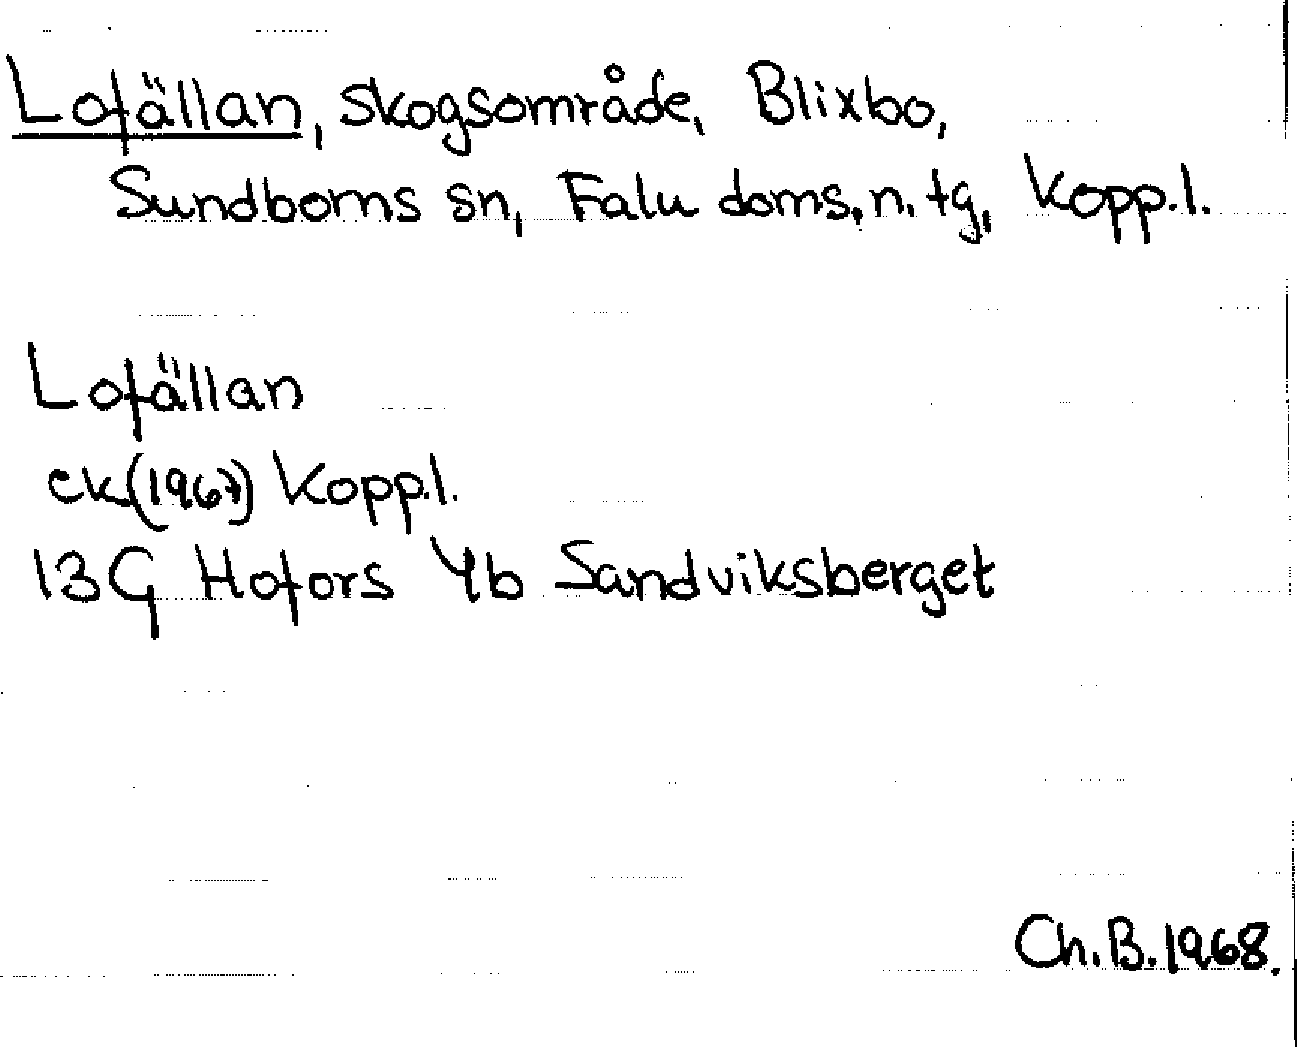 Lofällan, skogsområde, Blixbo,
Sundborns sn, Falu doms. n. tg, Kopp.l.
Lofällan
ek (1967) Kopp.l.
13G Hofors 4b Sandviksberget
Ch.B.1968.